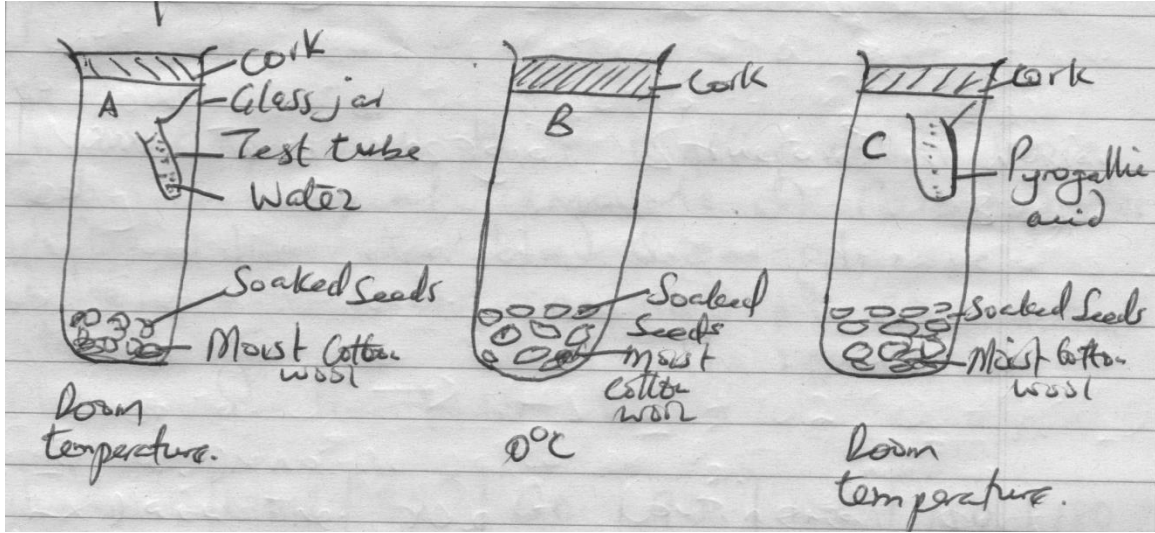 Cork
A
Glass jar
Test tube
Water
Soaked Seeds
Moist Cotton
wool
Room
temperature.
Cork
B
Soaked
Seeds
Moist
cotton
wool
0°C
Cork
C
Pyrogallic
acid
Soaked Seeds
Moist Cotton
wool
Room
temperature.